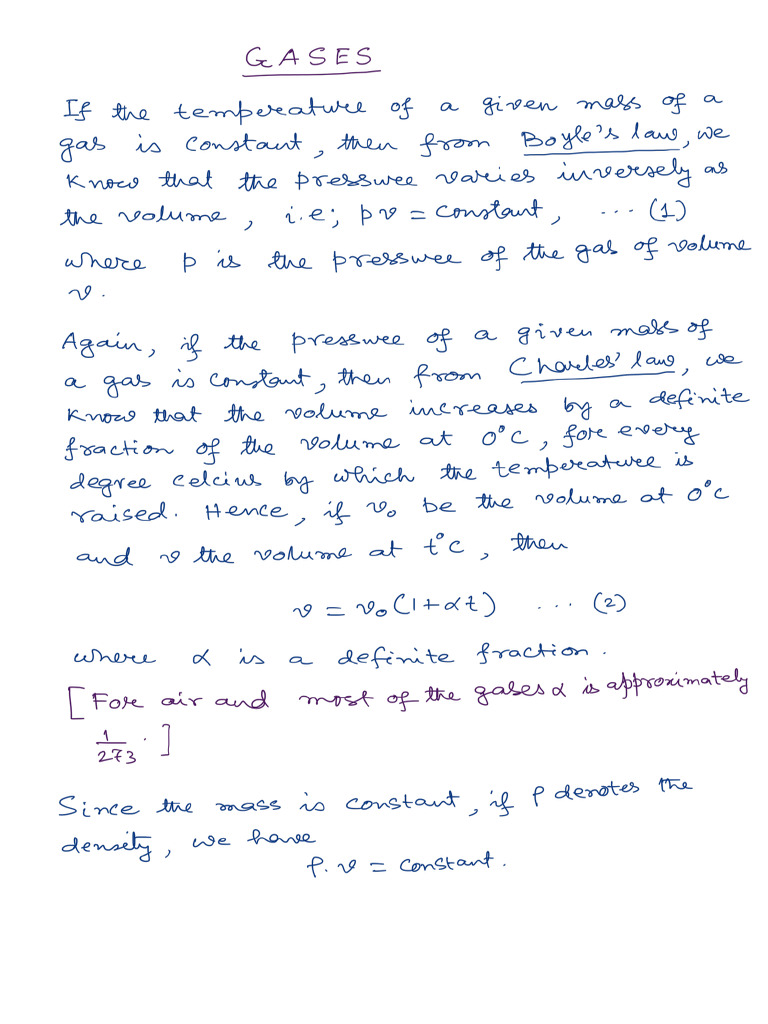 GASES
If the temperature of a given mass of a
gas is constant, then from Boyle's law, we
know that the pressure varies inversely as
the volume, i.e; pv = constant, ... (1)
where p is the pressure of the gas of volume
v.
Again, if the pressure of a given mass of
a gas is constant, then from Charles' law, we
know that the volume increases by a definite
fraction of the volume at 0°C, for every
degree celcius by which the temperature is
raised. Hence, if v₀ be the volume at 0°C
and v the volume at t°C, then
v = v₀(1+αt) ... (2)
where α is a definite fraction.
[For air and most of the gases α is approximately
1/273.]
Since the mass is constant, if ρ denotes the
density, we have
ρ.v = constant.